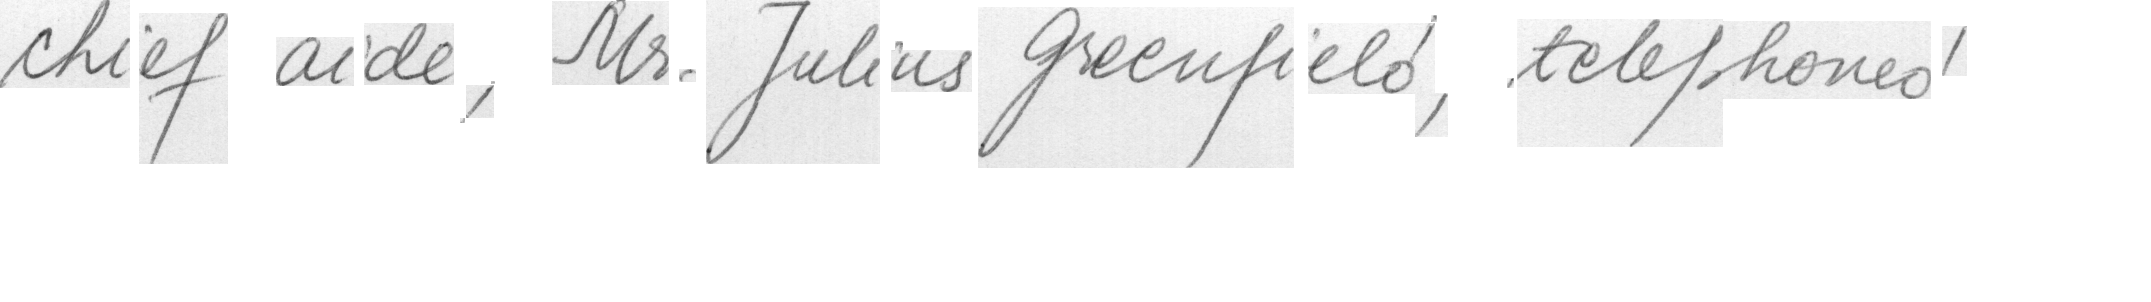 chief aide, Mr. Julius Greenfield, telephoned